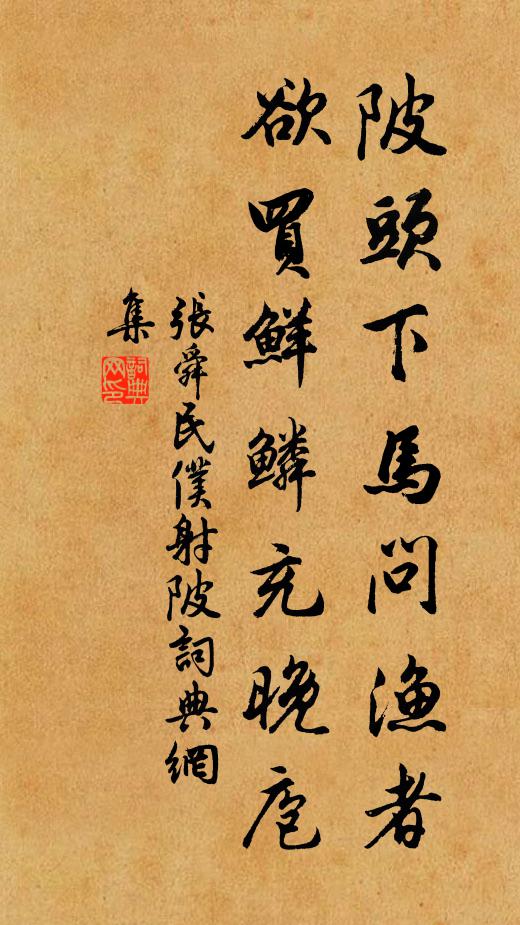 陂頭下馬問漁者
欲買鮮鱗充晚庖
張舜民僕射陂詞典網
集
詞典网印